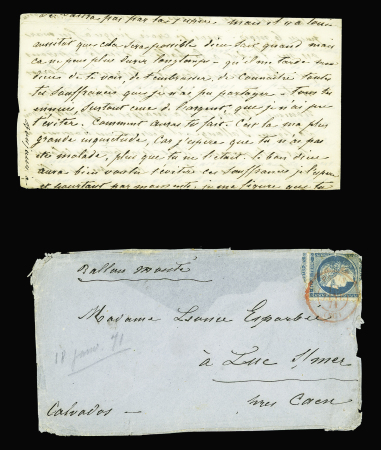 aussitôt que cela sera possible dieu sait quand mais
ca ne peut plus durer longtemps - qu'il me tarde mon
dieu de te voir, de t'embrasser, de connaître toutes
tes souffrances que je n'ai pu partager - tous tes
ennuis, surtout ceux de l'argent, que je n'ai pu
t'éviter. Comment auras tu fait. C'est là ma plus
grande inquiétude, Car j'espère que tu n'as pas
été malade, plus que tu ne l'étais. le bon dieu
aura bien voulu t'éviter ces souffrances je l'espère
et pourtant par moments, je me figure que tu
Ballon monté
Madame Léonce Esparbié
à Luc s/mer
près Caen
Calvados -
18 janv. 71